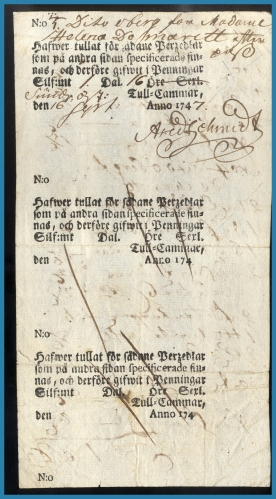 N:o 4. Dito
Helena
Hafwer tullat för sådane Perzedlar
som på andra sidan specificerade fin-
nas, och derföre gifwit i Penningar
Silf:mt 1. Dal. 16 Öre Serl.
Tull-Cammar,
den 16 Anno 1747.
N:o
Hafwer tullat för sådane Perzedlar
som på andra sidan specificerade fin-
nas, och derföre gifwit i Penningar
Silf:mt Dal. Öre Serl.
Tull-Cammar,
den Anno 174
N:o
Hafwer tullat för sådane Perzedlar
som på andra sidan specificerade fin-
nas, och derföre gifwit i Penningar
Silf:mt Dal. Öre Serl.
Tull-Cammar,
den Anno 174
N:o